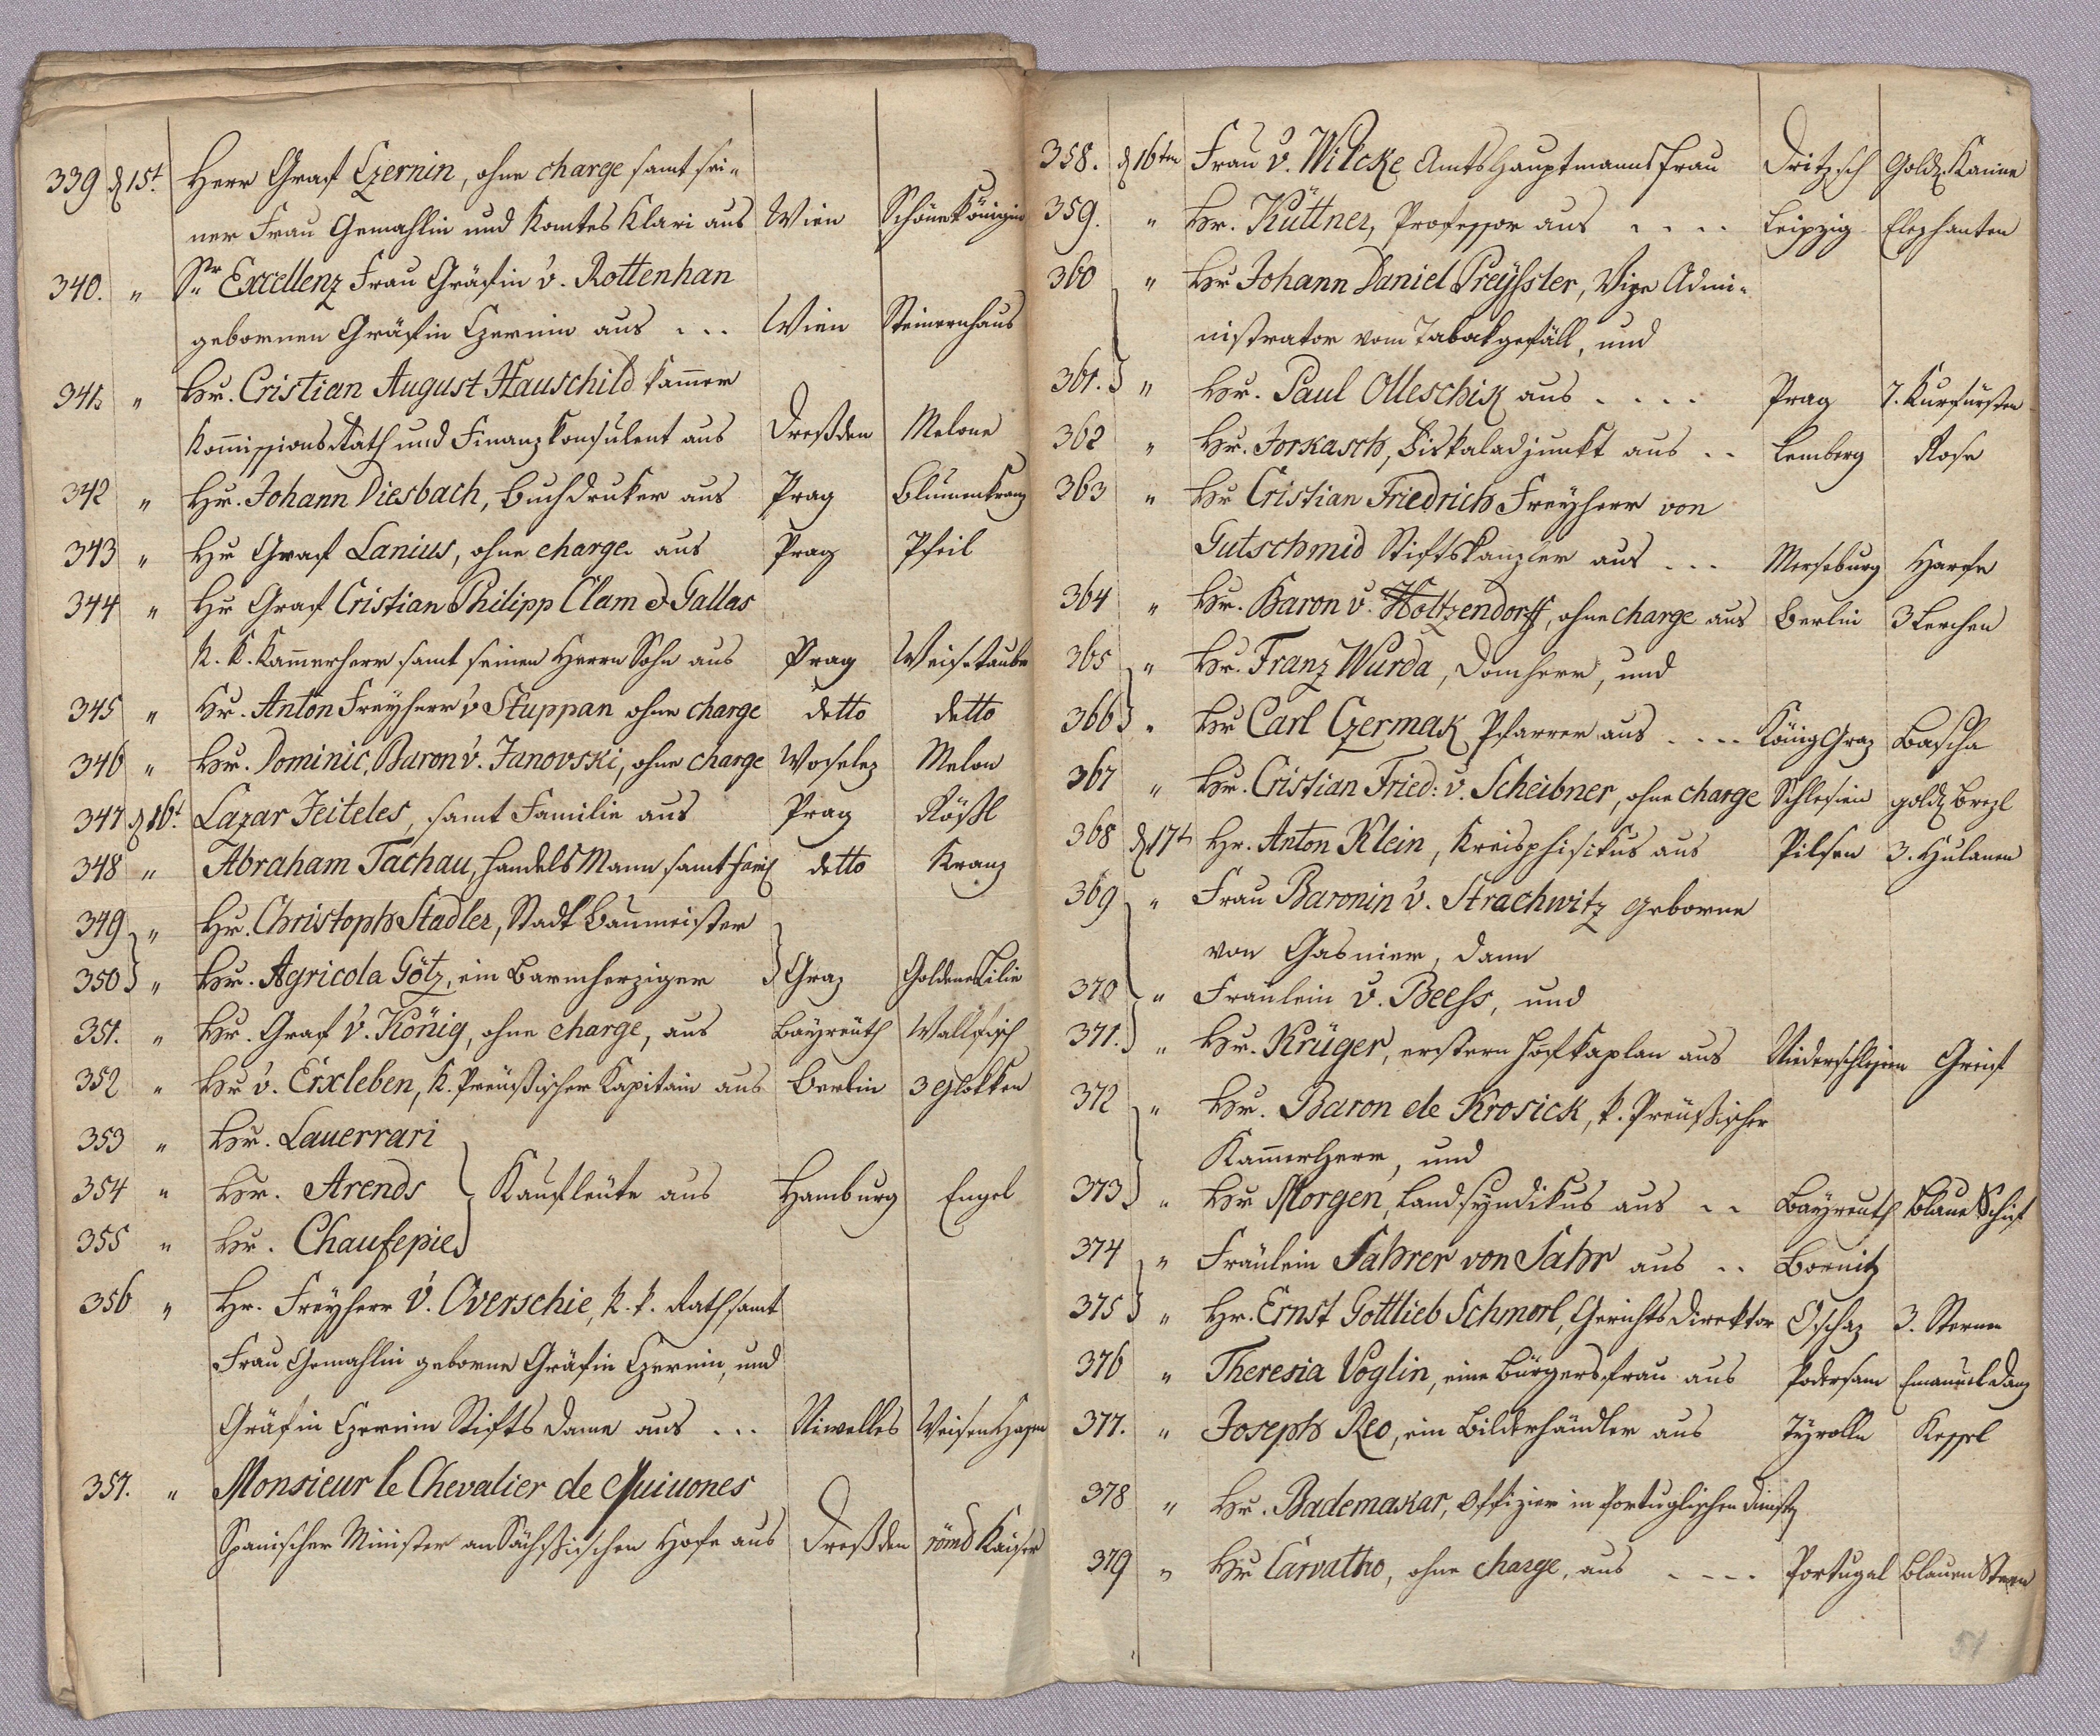 339 d 15t. Herr Graf Czernin, ohne charge samt sei-
ner Frau Gemahlin und Komtes Klari aus Wien Schöne Königin
340. " Sr Excellenz Frau Gräfin v. Rottenhan
gebornen Gräfin Czernin aus ... Wien Steinernhaus
341. " Hr. Cristian August Hauschild Kammer
Kommissions Rath und Finanzkonsulent aus Dreßden Melone
342 " Hr. Johann Diesbach, Buchdruker aus Prag Blumenkranz
343 " Hr Graf Lanius, ohne charge aus Prag Pfeil
344 " Hr Graf Cristian Philipp Clam d Gallas
K. K. Kammerherr samt seinen Herrn Sohn aus Prag Weise taube
345 " Hr. Anton Freyherr v Stuppan ohne charge detto detto
346 " Hr. Dominic. Baron v. Janovski, ohne charge Woselez Melon
347 d 16t. Lazar Jeiteles, samt Familie aus Prag Rößl
348 " Abraham Tachau, Handels Mann samt Fami detto Kranz
349 " Hr. Christoph Stadler, Stadt Baumeister
350 " Hr. Agricola Götz, ein Barmherziger Graz Goldene Lilie
351. " Hr. Graf v. König, ohne charge, aus Bayreuth Wallfisch
352 " Hr v. Erxleben, K. Preußischer Kapitain aus Berlin 3 Glokken
353 " Hr. Lauerrari
354 " Hr. Arends Kaufleute aus Hamburg Engel
355 " Hr. Chaufepie
356 " Hr. Freyherr v. Overschie, K. k. Rath samt
Frau Gemahlin geborne Gräfin Czernin, und
Gräfin Czernin Stifts Dame aus ... Niwelles Weisen Hasen
357. " Monsieur le Chevalier de Quiuones
Spanischer Minister an Sächsischen Hofe aus Dreßden röm Kaiser
358. d 16ten Frau v. Wilcke Amtshauptmanns frau Dritzsch Gold. Kanne
359. " Hr. Küttner, Professor aus .... Leipzig Elephanten
360 " Hr Johann Daniel Preyssler, Vize Admi-
nistrator vom Tabakgefäll, und
361. " Hr. Paul Olleschik aus .... Prag 7. Kurfürsten
362 " Hr. Jorkasch, Fiskaladjunkt aus .. Lemberg Rose
363 " Hr Cristian Friedrich Freyherr von
Gutschmid Stiftskanzler aus ... Merseburg Harfe
364 " Hr. Baron v. Holtzendorff, ohne charge aus Berlin 3 Lerchen
365 " Hr. Franz Wurda, Domherr, und
366 " Hr Carl Czermak Pfarrer aus .... König Graz Bascha
367 " Hr. Cristian Fried: v. Scheibner, ohne charge Schlesien gold Brezl
368 d 17t Hr. Anton Klein, Kreisphisikus aus Pilsen 3. Hulanen
369 " Frau Baronin v. Strachwitz geborne
von Gasnier, dann
370 " Fraulein v. Beess, und
371. " Hr. Krüger, erstern Hofkaplan aus Niederschlesien Greif
372 " Hr. Baron de Krosick, k. Preußischer
Kammerherr, und
373 " Hr Morgen, Landsyndikus aus .. Bayreuth Blaue Schif
374 " Fräulein Sahrer von Sahr aus .. Bornitz
375 " Hr. Ernst Gottlieb Schmorl, Gerichts Direktor Oschaz 3. Sterne
376 " Theresia Voglin, eine Bürgersfrau aus Podersam Emanuel Danz
377. " Joseph Reo, ein Bilderhändler aus Tyrolle Kessel
378 " Hr. Bademakar, Offizier in Portuglischen Dienst
379 " Hr Carvatho, ohne charge, aus .... Portugal Blauen Stern
51